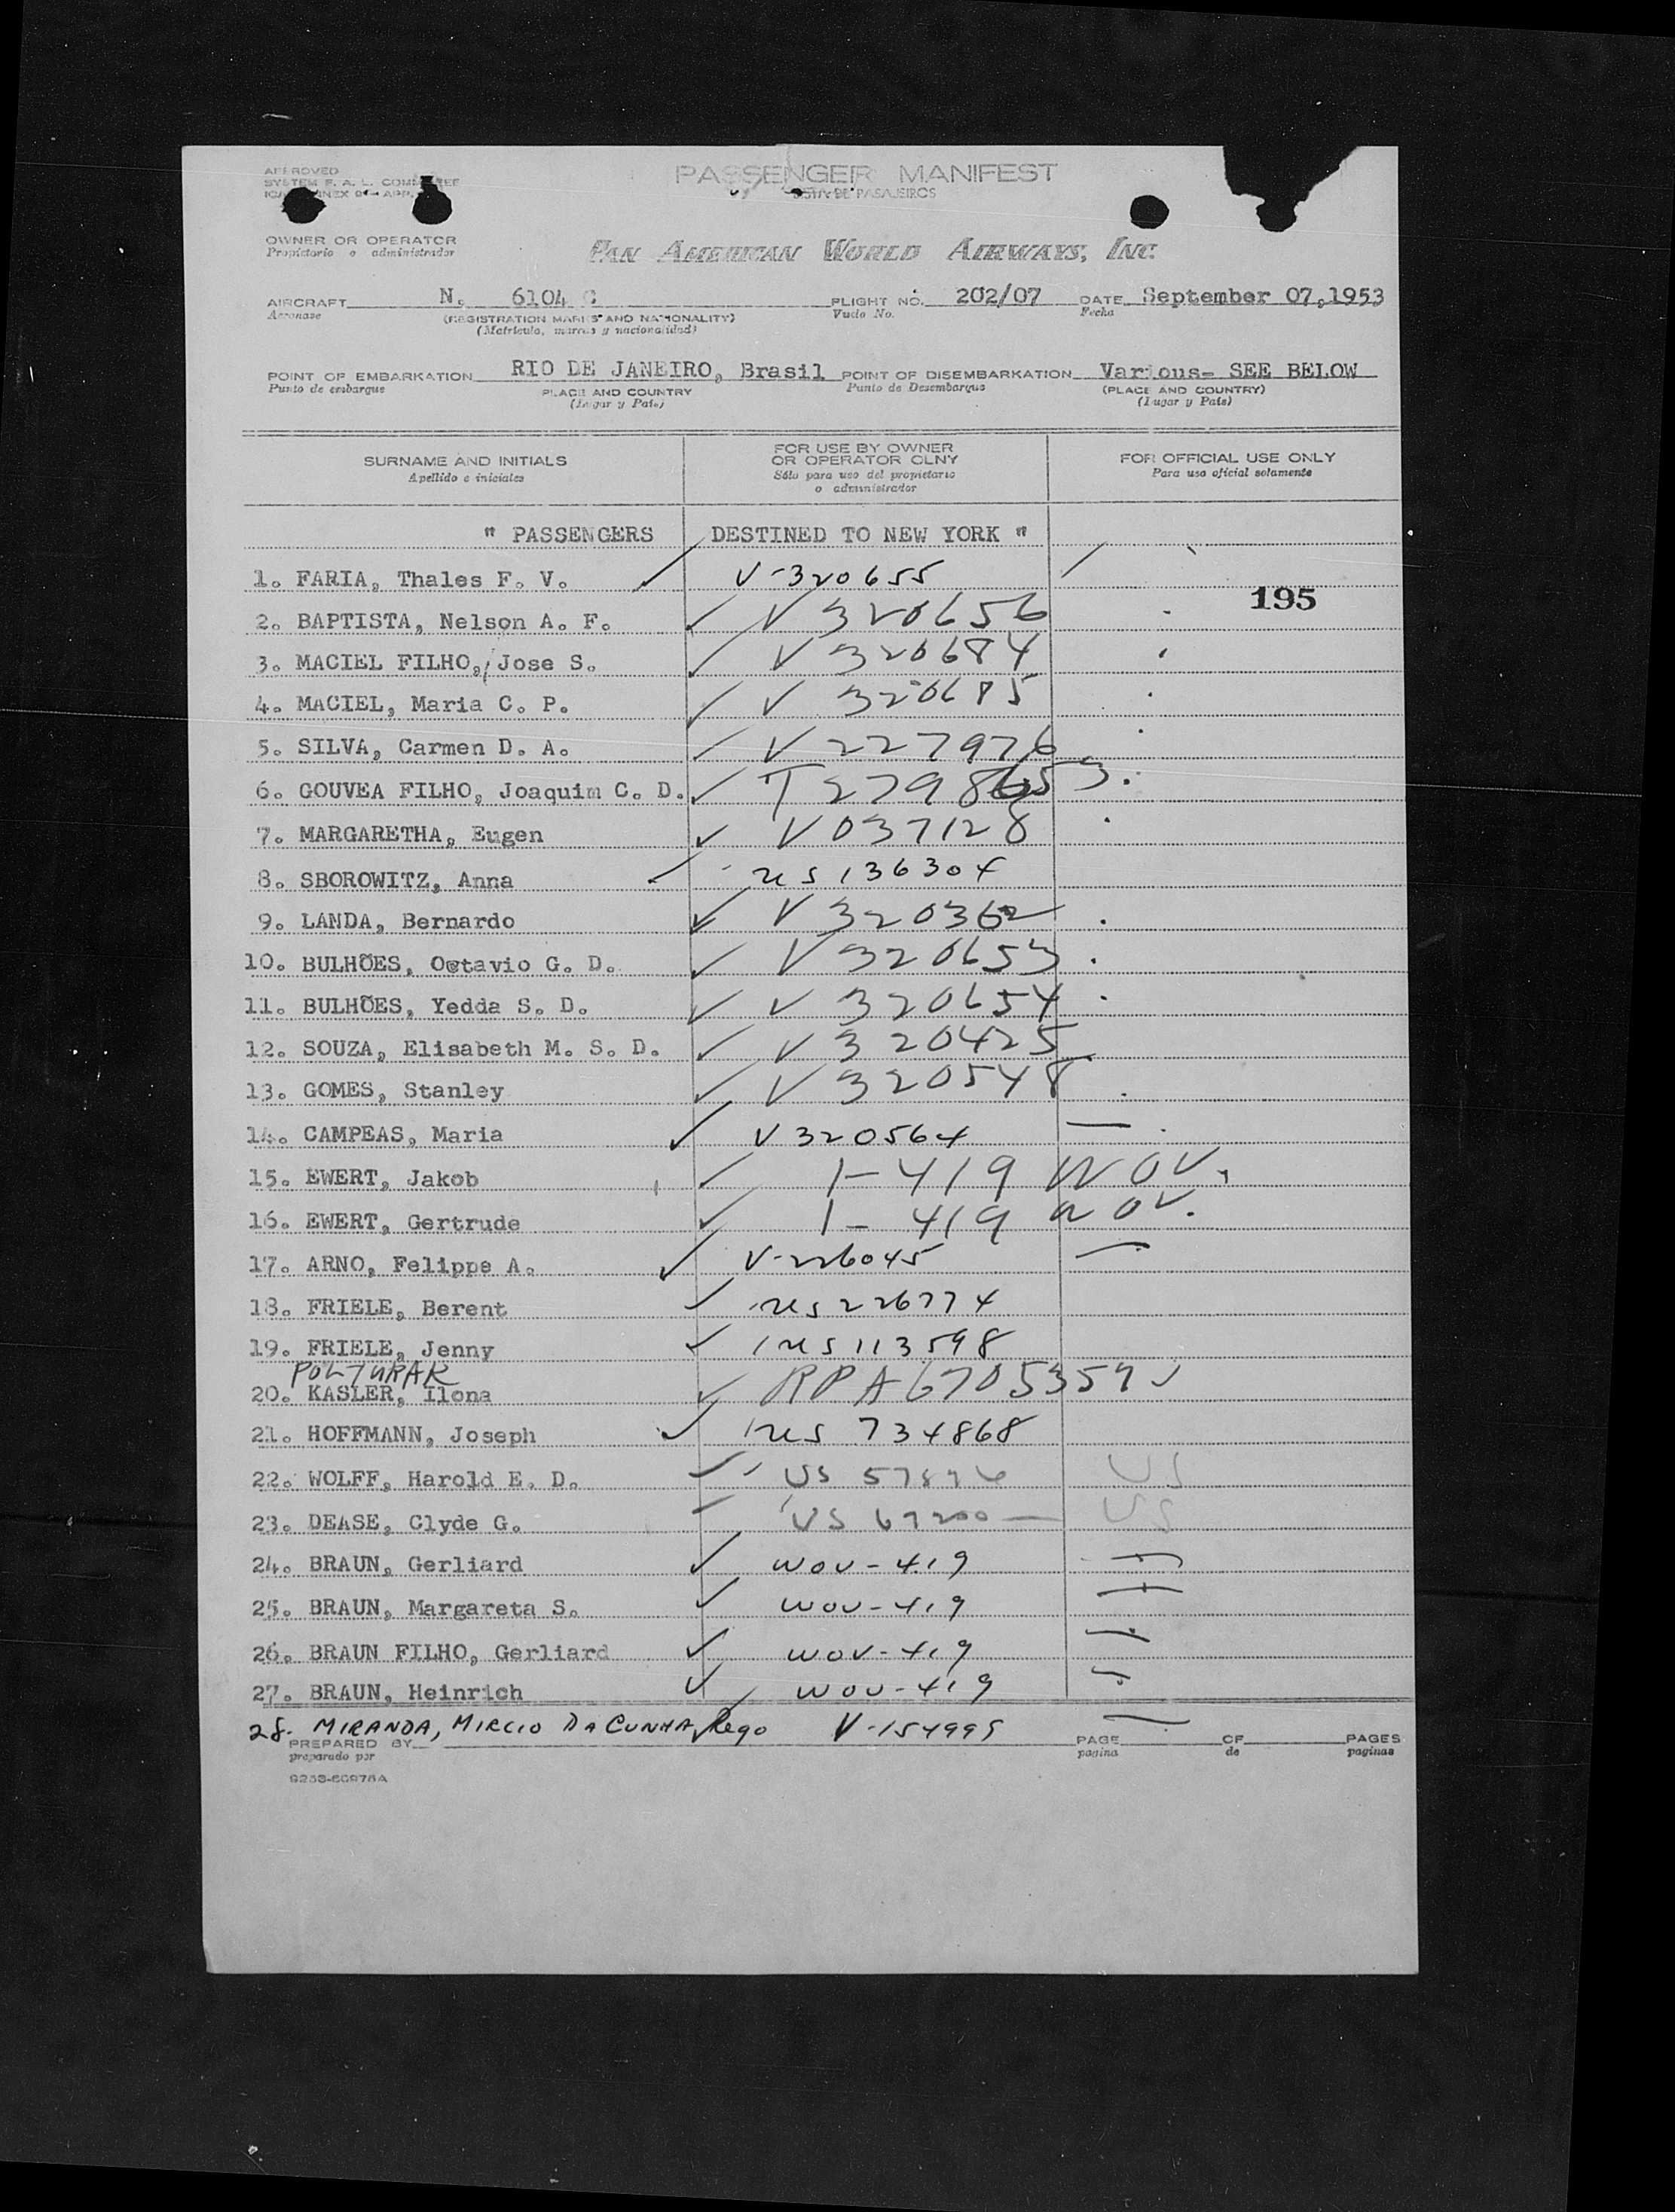 APPROVED
SYSTEM F. A. L. COMMITTEE
PASSENGER MANIFEST
LISTA DE PASAJEIROS
OWNER OR OPERATOR
Propietario o administrador
PAN AMERICAN WORLD AIRWAYS, INC.
AIRCRAFT N. 6104 C FLIGHT NO. 202/07 DATE September 07,1953
Aeronave Vuelo No. Fecha
(REGISTRATION MARKS AND NATIONALITY)
(Matrícula, marcas y nacionalidad)
POINT OF EMBARKATION RIO DE JANEIRO, Brasil POINT OF DISEMBARKATION Various- SEE BELOW
Punto de embarque Punto de Desembarque
PLACE AND COUNTRY (PLACE AND COUNTRY)
(Lugar y País) (Lugar y País)
SURNAME AND INITIALS FOR USE BY OWNER OR OPERATOR OLNY FOR OFFICIAL USE ONLY
Apellido e iniciales Sólo para uso del propietario o administrador Para uso oficial solamente
" PASSENGERS DESTINED TO NEW YORK "
1. FARIA, Thales F. V. V-320655
195
2. BAPTISTA, Nelson A. F. V 320656
3. MACIEL FILHO, Jose S. V 320684
4. MACIEL, Maria C. P. V 320685
5. SILVA, Carmen D. A. V 227976
6. GOUVEA FILHO, Joaquim C. D.
7. MARGARETHA, Eugen V 037128
8. SBOROWITZ, Anna US 136304
9. LANDA, Bernardo V 320362
10. BULHÕES, Octavio G. D. V 320653
11. BULHÕES, Yedda S. D. V 320654
12. SOUZA, Elisabeth M. S. D. V 320425
13. GOMES, Stanley V 320548
14. CAMPEAS, Maria V 320564
15. EWERT, Jakob 1-419 WOV.
16. EWERT, Gertrude 1-419 WOV.
17. ARNO, Felippe A. V-226045
18. FRIELE, Berent US 226774
19. FRIELE, Jenny US 113598
POLTURAR
20. KASLER, Ilona RPA 6705359
21. HOFFMANN, Joseph US 734868
22. WOLFF, Harold E. D. US US
23. DEASE, Clyde G. US 67200 US
24. BRAUN, Gerliard WOV-419
25. BRAUN, Margareta S. WOV-419
26. BRAUN FILHO, Gerliard WOV-419
27. BRAUN, Heinrich WOV-419
28. MIRANDA, MIRCIO DA CUNHA Rego V-154995
PREPARED BY PAGE OF PAGES
preparado por pagina de paginas